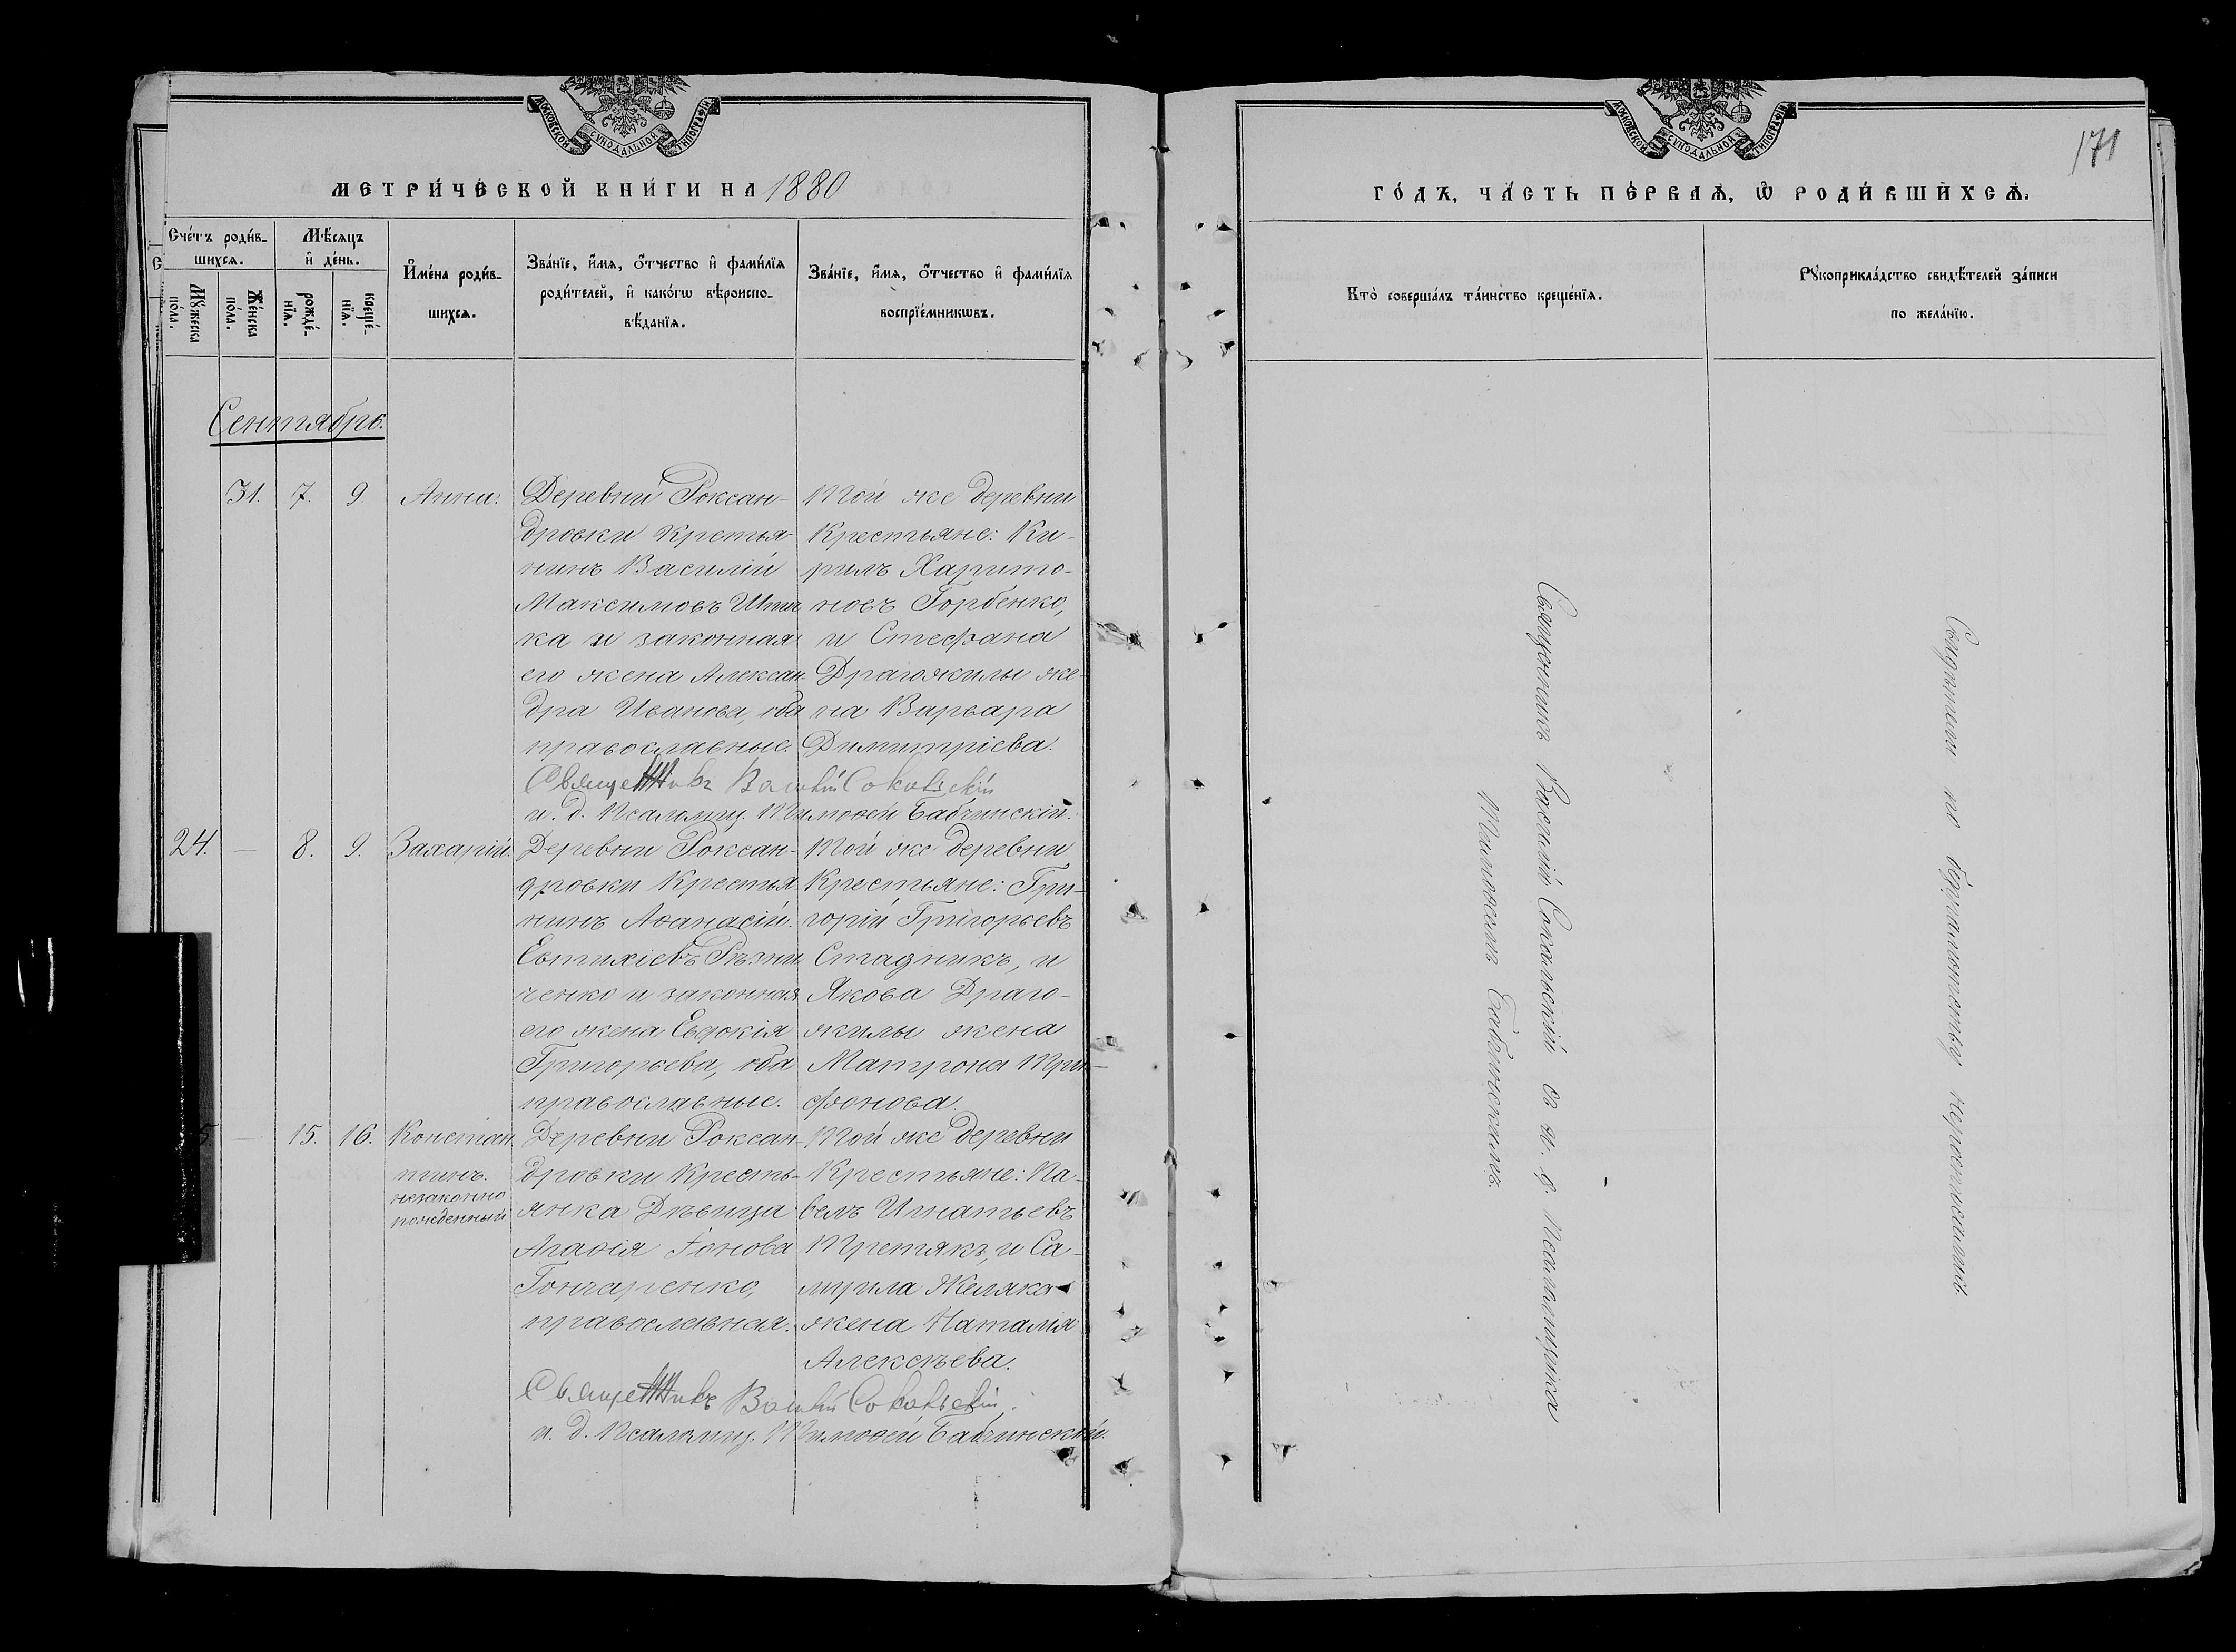 МОСКОВСКОЙ СѴНОДАЛЬНОЙ ТИПОГРАФІИ
МЕТРИ́ЧЕСКОЙ КНИ́ГИ НА 1880
Сче́тъ роди́в-
шихсѧ.
Мѣ́сѧцъ
и҆ де́нь.
Му́жеска
по́ла.
Же́нска
по́ла.
рожде́-
нїѧ.
креще́-
нїѧ.
И҆мена̀ роди́в-
шихсѧ.
Зва́нїе, и҆́мѧ, ѻ҆́тчество и҆ фами́лїѧ
роди́телей, и҆ како́гѡ вѣроиспо-
вѣ́данїѧ.
Зва́нїе, и҆́мѧ, ѻ҆́тчество и҆ фами́лїѧ
воспрїе́мникѡвъ.
Сентябрь.
31. 7. 9. Анна.
Деревни Роксан-
дровки кретья-
нинъ Василій
Максимовъ
ка и законная
его жена Алексан
дра Иванова, оба
православные.
Той же деревни
Крестьяне: Ки-
рилъ Харито-
новъ Горбенко,
и Стефана
Драгожилы же-
на Варвара
Димитріева.
Священникъ Василій Сокальскій
и. д. Псаломщ. Тимоѳей Бабчинскій.
24. — 8. 9. Захарій.
Деревни Роксан-
дровки Крестья
нинъ Аѳанасій
Евтихіевъ Рѣзни
ченко и законная
его жена Евдокія
Григорьева, оба
православные.
Той же деревни
Крестьяне: Гри-
горій Григорьевъ
Стадникъ, и
Якова Драго-
жилы жена
Матрона Три-
фонова.
5. — 15. 16. Констан
тинъ.
незаконно
рожденный
Деревни Роксан-
дровки Кресть-
янка Дѣвица
Агаѳія Іонова
Гончаренко,
православная.
Той же деревни
Крестьяне: Па-
велъ Игнатьевъ
Третякъ, и Са-
муила Желяка
жена Наталія
Алексѣева.
Священникъ Василій Сокальскій.
и. д. Псаломщ. Тимоѳей Бабчинскій.
МОСКОВСКОЙ СѴНОДАЛЬНОЙ ТИПОГРАФІИ
171
ГО́ДЪ, ЧА́СТЬ ПЕ́РВАѦ, Ѡ҆ РОДИ́ВШИХСѦ.
Кто̀ соверша́лъ та́инство креще́нїѧ.
Рꙋкоприкла́дство свидѣ́телей за́писи
по жела́нїю.
Священникъ Василій Сокальскій съ и. д. Псаломщика
Тимоѳеемъ Бабчинскимъ.
Свидѣтели по безграмотству нерописались